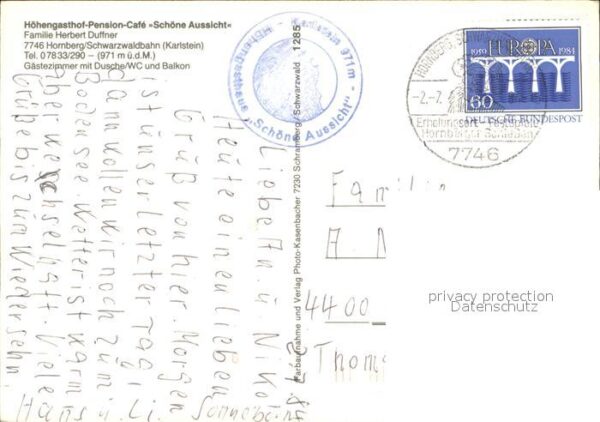 Höhengasthof-Pension-Café »Schöne Aussicht«
Familie Herbert Duffner
7746 Hornberg/Schwarzwaldbahn (Karlstein)
Tel. 07833/290 – (971 m ü.d.M.)
Gästezimmer mit Dusche/WC und Balkon
Höhengasthaus "Schöne Aussicht" - Karlstein 971m -
1285
Farbaufnahme und Verlag Photo-Kasenbacher 7230 Schramberg/Schwarzwald
HORNBERG, SCHWARZW
-2.-7.
Erholungsort - Festspiele
Hornberger Schießen
7746
1959 EUROPA 1984
60
DEUTSCHE BUNDESPOST
Liebe u. Niko
Heute einen lieben
Gruß von hier. Morgen
ist unser letzter Tag,
dann wollen wir noch zum
Bodensee. Wetter ist warm
aber wechselhaft. Viele
Grüße bis zum Wiedersehn.
Hans u. Li. Sonnabend
Familie
A. N
4400
Thom
privacy protection
Datenschutz